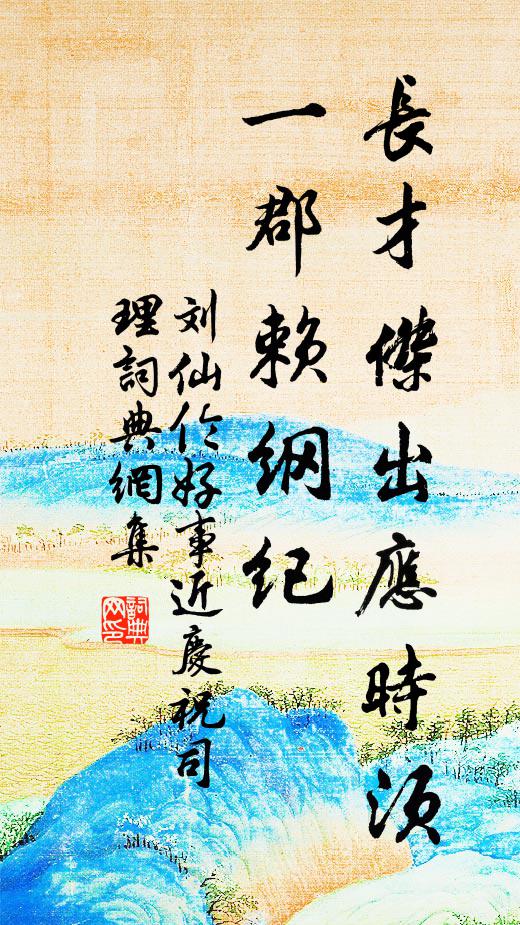 長才傑出應時須
一郡賴綱紀
刘仙伦好事近慶祝司
理詞典網集
詞典
网印